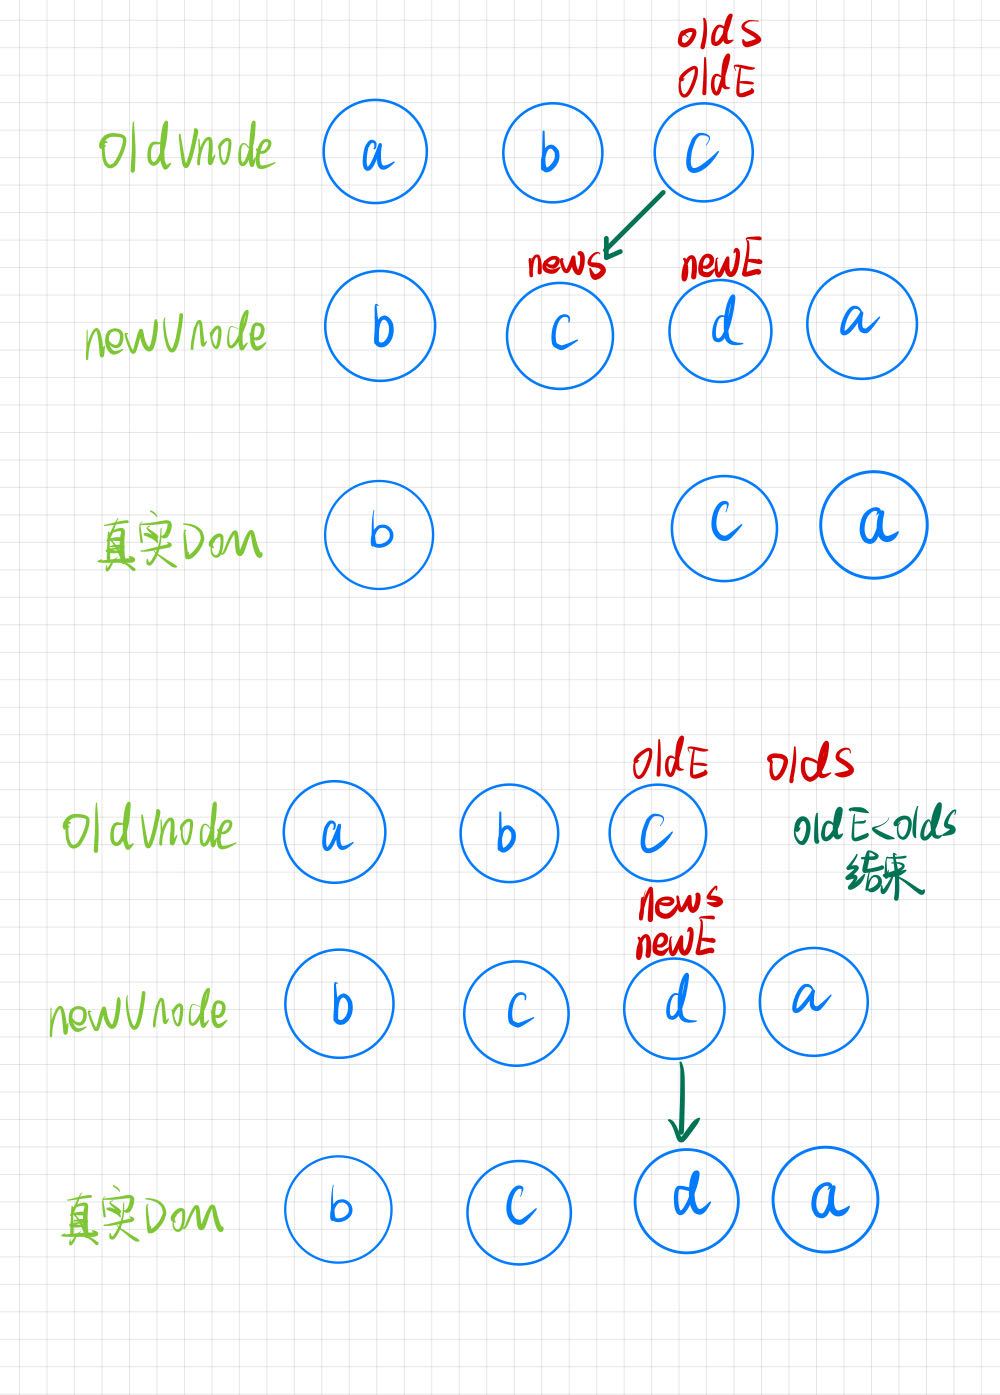 oldS
oldE
oldVnode a b c
newS newE
newVnode b c d a
真实Dom b c a
oldE oldS
oldVnode a b c oldE<oldS
结果
newS
newE
newVnode b c d a
真实Dom b c d a